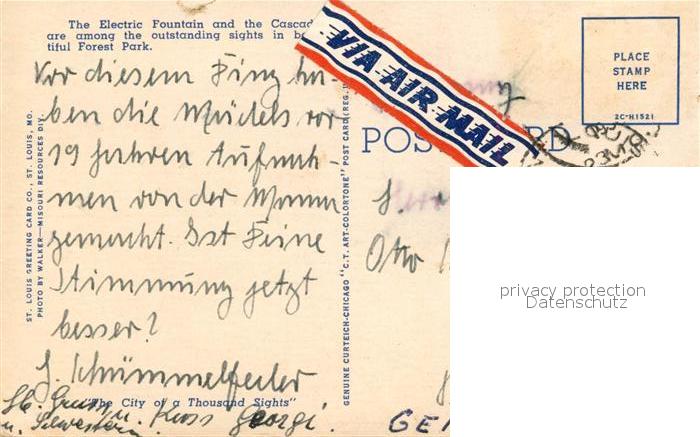 The Electric Fountain and the Cascad
are among the outstanding sights in b
tiful Forest Park.
Vor diesem Ding ha-
ben die Mädels vor
19 Jahren Aufnah-
men von der Mama
gemacht. Ist Deine
Stimmung jetzt
besser?
J. Schümmelfeder
"The City of a Thousand Sights"
Gruss u. Kuss Georgi.
u.
ST. LOUIS GREETING CARD CO., ST. LOUIS, MO.
PHOTO BY WALKER—MISSOURI RESOURCES DIV.
GENUINE CURTEICH-CHICAGO "C.T. ART-COLORTONE" POST CARD (REG. U
VIA AIR MAIL
POS RD
PLACE
STAMP
HERE
2C-H1521
Otto
GE
privacy protection
Datenschutz